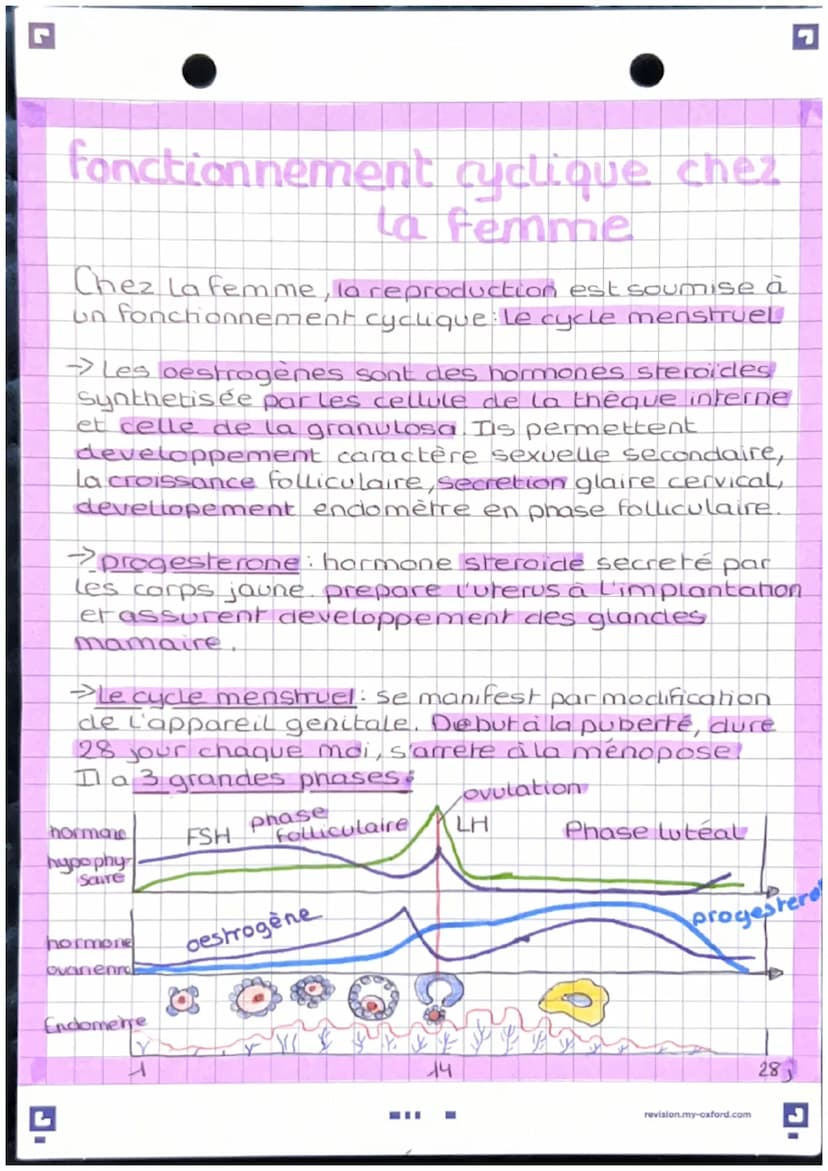 fonctionnement cyclique chez
la femme
Chez la femme, la reproduction est soumise à
un fonctionnement cyclique: le cycle menstruel
-> Les oestrogènes sont des hormones steroides
synthetisée par les cellule de la thèque interne
et celle de la granulosa. Ils permettent
developpement caractère sexuelle secondaire,
la croissance folliculaire, secretion glaire cervical,
devellopement endomètre en phase folliculaire.
-> progesterone : hormone steroide secreté par
les corps jaune. prepare l'uterus à l'implantation
et assurent developpement des glandes
mamaire.
-> Le cycle menstruel : se manifest par modification
de l'appareil genitale. Debut à la puberté, dure
28 jour chaque moi, s'arrete à la ménopose.
Il a 3 grandes phases:
ovulation
hormone
hypophy-
saire
FSH
phase
folliculaire
LH
Phase lutéal
hormone
oestrogène
progesterol
Endometre
1
14
28j
revision.my-oxford.com